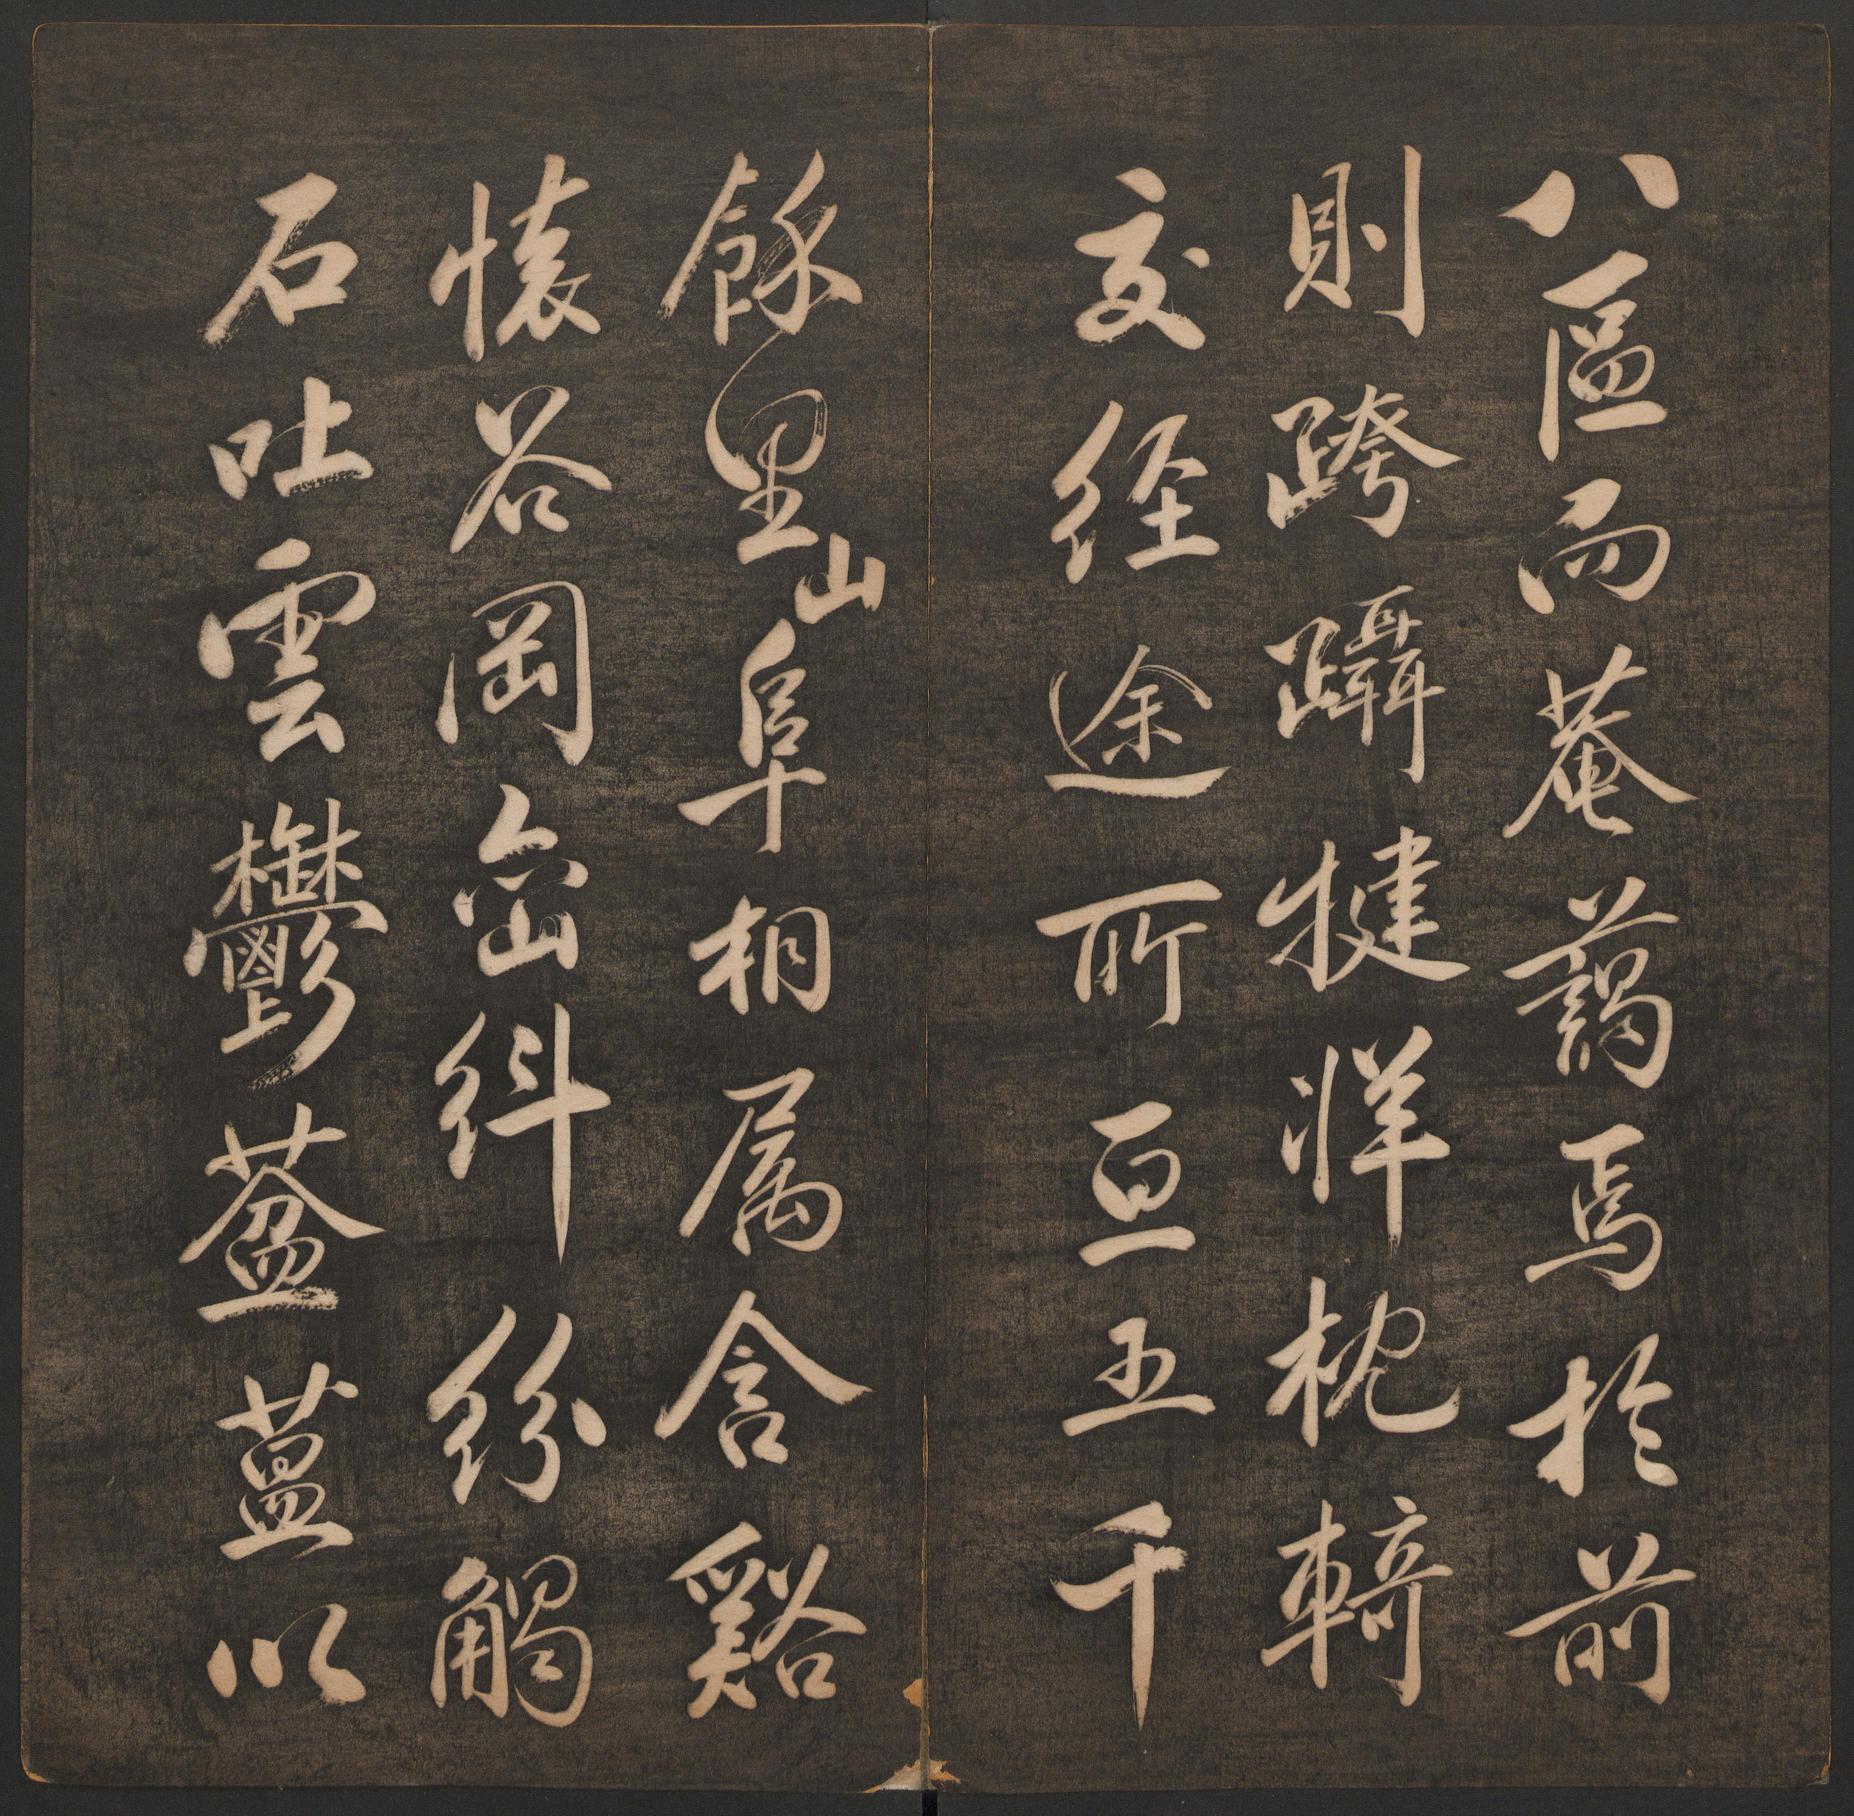 八區而菴藹焉於前
則跨躡犍牂枕輢
交経途所亘五千
餘里山阜相属含谿
懷谷岡峦紏紛觸
石吐雲鬱葐蒀以